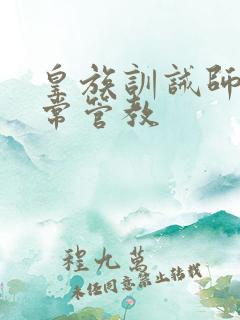 皇族訓誡師
常管教
程九萬
未經同意禁止轉載